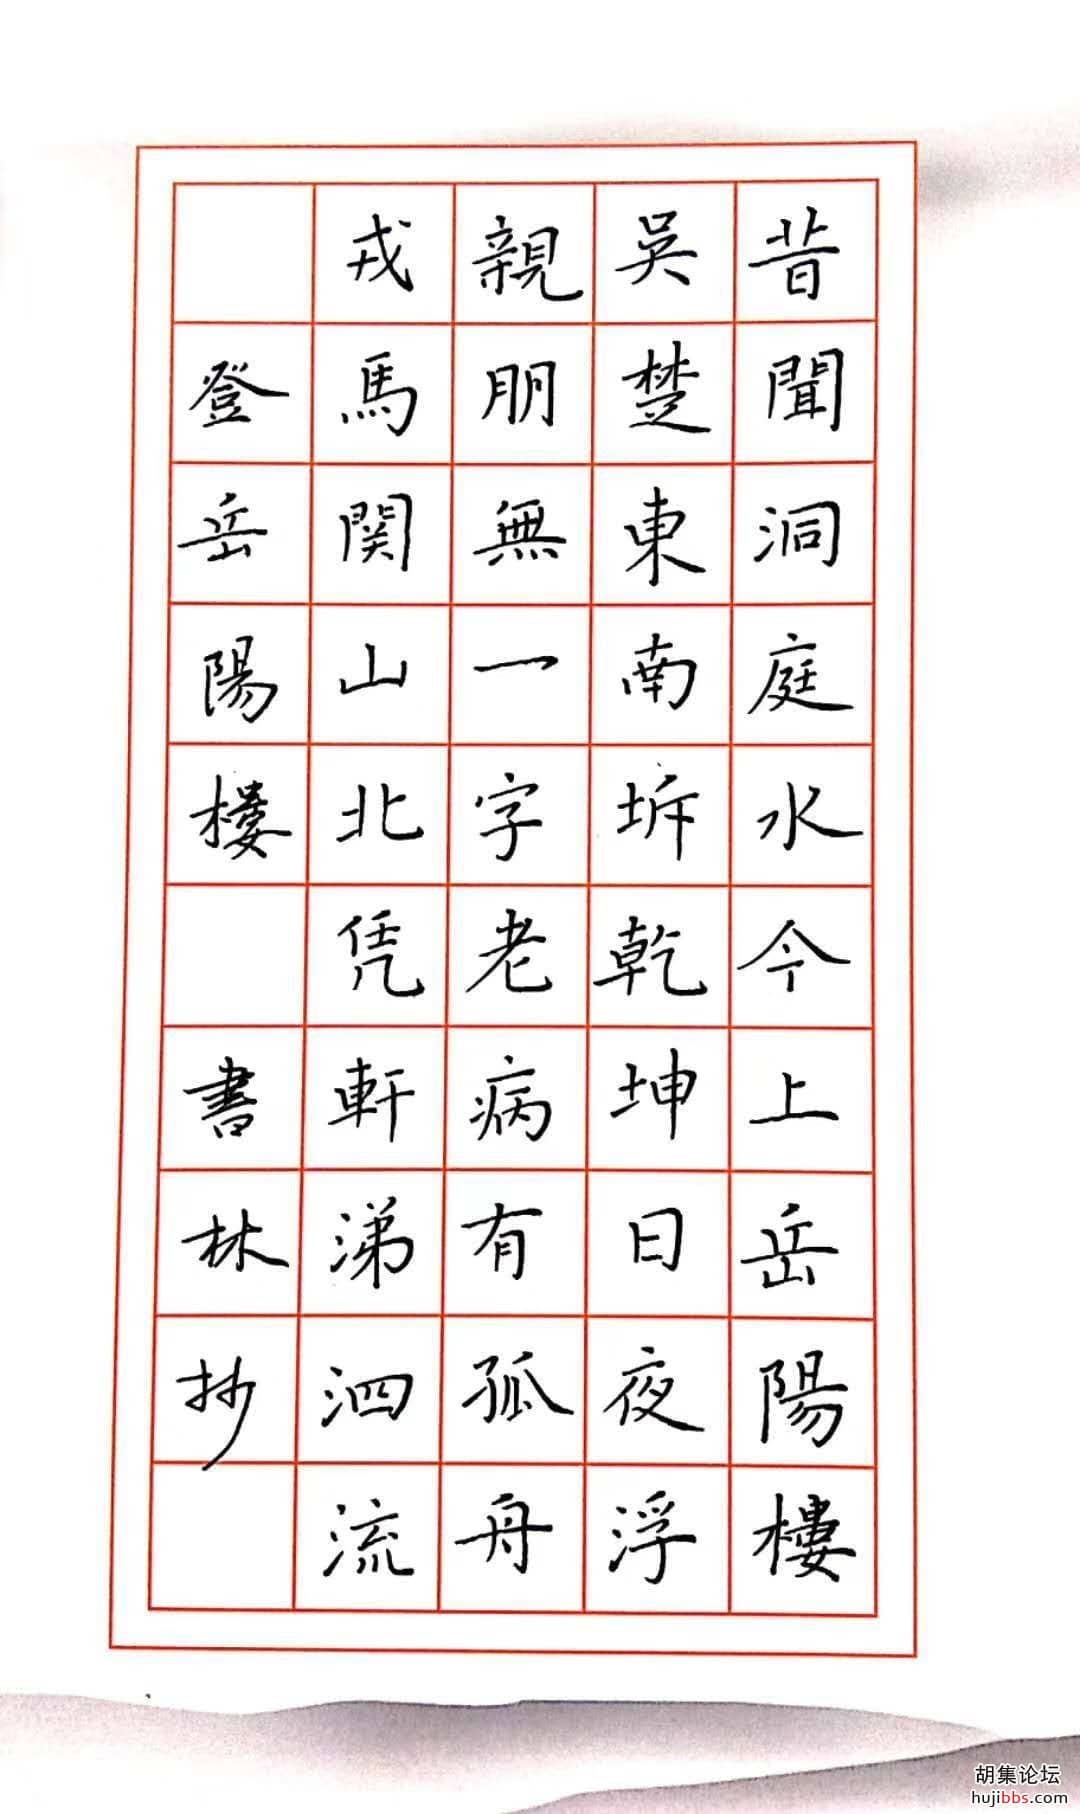 昔聞洞庭水今上岳陽樓
吳楚東南坼乾坤日夜浮
親朋無一字老病有孤舟
戎馬関山北凭軒涕泗流
登岳陽樓 書林抄
胡集论坛
hujibbs.com